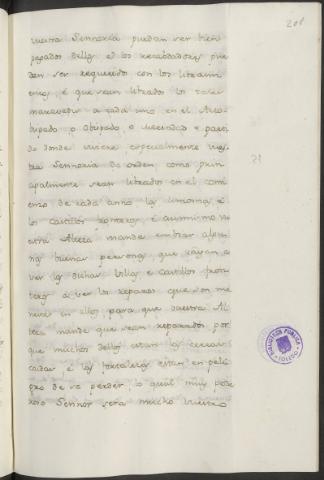 201
vuestra Sennoria puedan ser bien
pagados dellos e los recabdadores pue
den ser requeridos con los libramien
tos, e que sean librados los tales
maravedis a cada uno en el Arzo
bispado, o Obispado o merindad e partes
do donde viviere especialmente vues
tra Sennoria dé orden como prin
cipalmente sean librados en el comi
enzo de cada anno las tenencias e
los castillos fronteros e assimismo vu
estra Alteza mande embiar algu
nas buenas personas que vayan a
ver las dichas Villas e Castillos fron
teros a ver los reparos que son me
nester en ellos para que vuestra Al
teza mande que sean reparados por
que muchos dellos estan las cercas
caidas, e las fortalezas estan en peli
gro de se perder, lo qual muy pode
roso Sennor sera mucho vuestro
BIBLIOTECA PUBLICA
TOLEDO